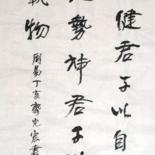 健君子以自
地勢坤君子以
載物
周易丁亥